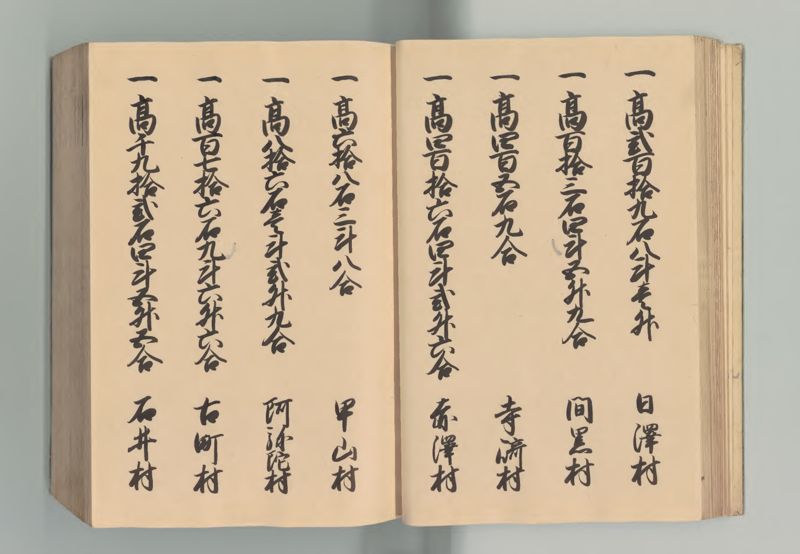 一 高弐百拾九石八斗壱升 日澤村
一 高百拾三石四斗五升九合 間黒村
一 高四百五石九合 寺流村
一 高四百拾六石四斗弐升六合 赤澤村
一 高六拾八石三斗八合 甲山村
一 高八拾六石壱斗弐升九合 阿弥陀村
一 高百七拾六石九斗六升六合 古町村
一 高千九拾弐石四斗五升五合 石井村